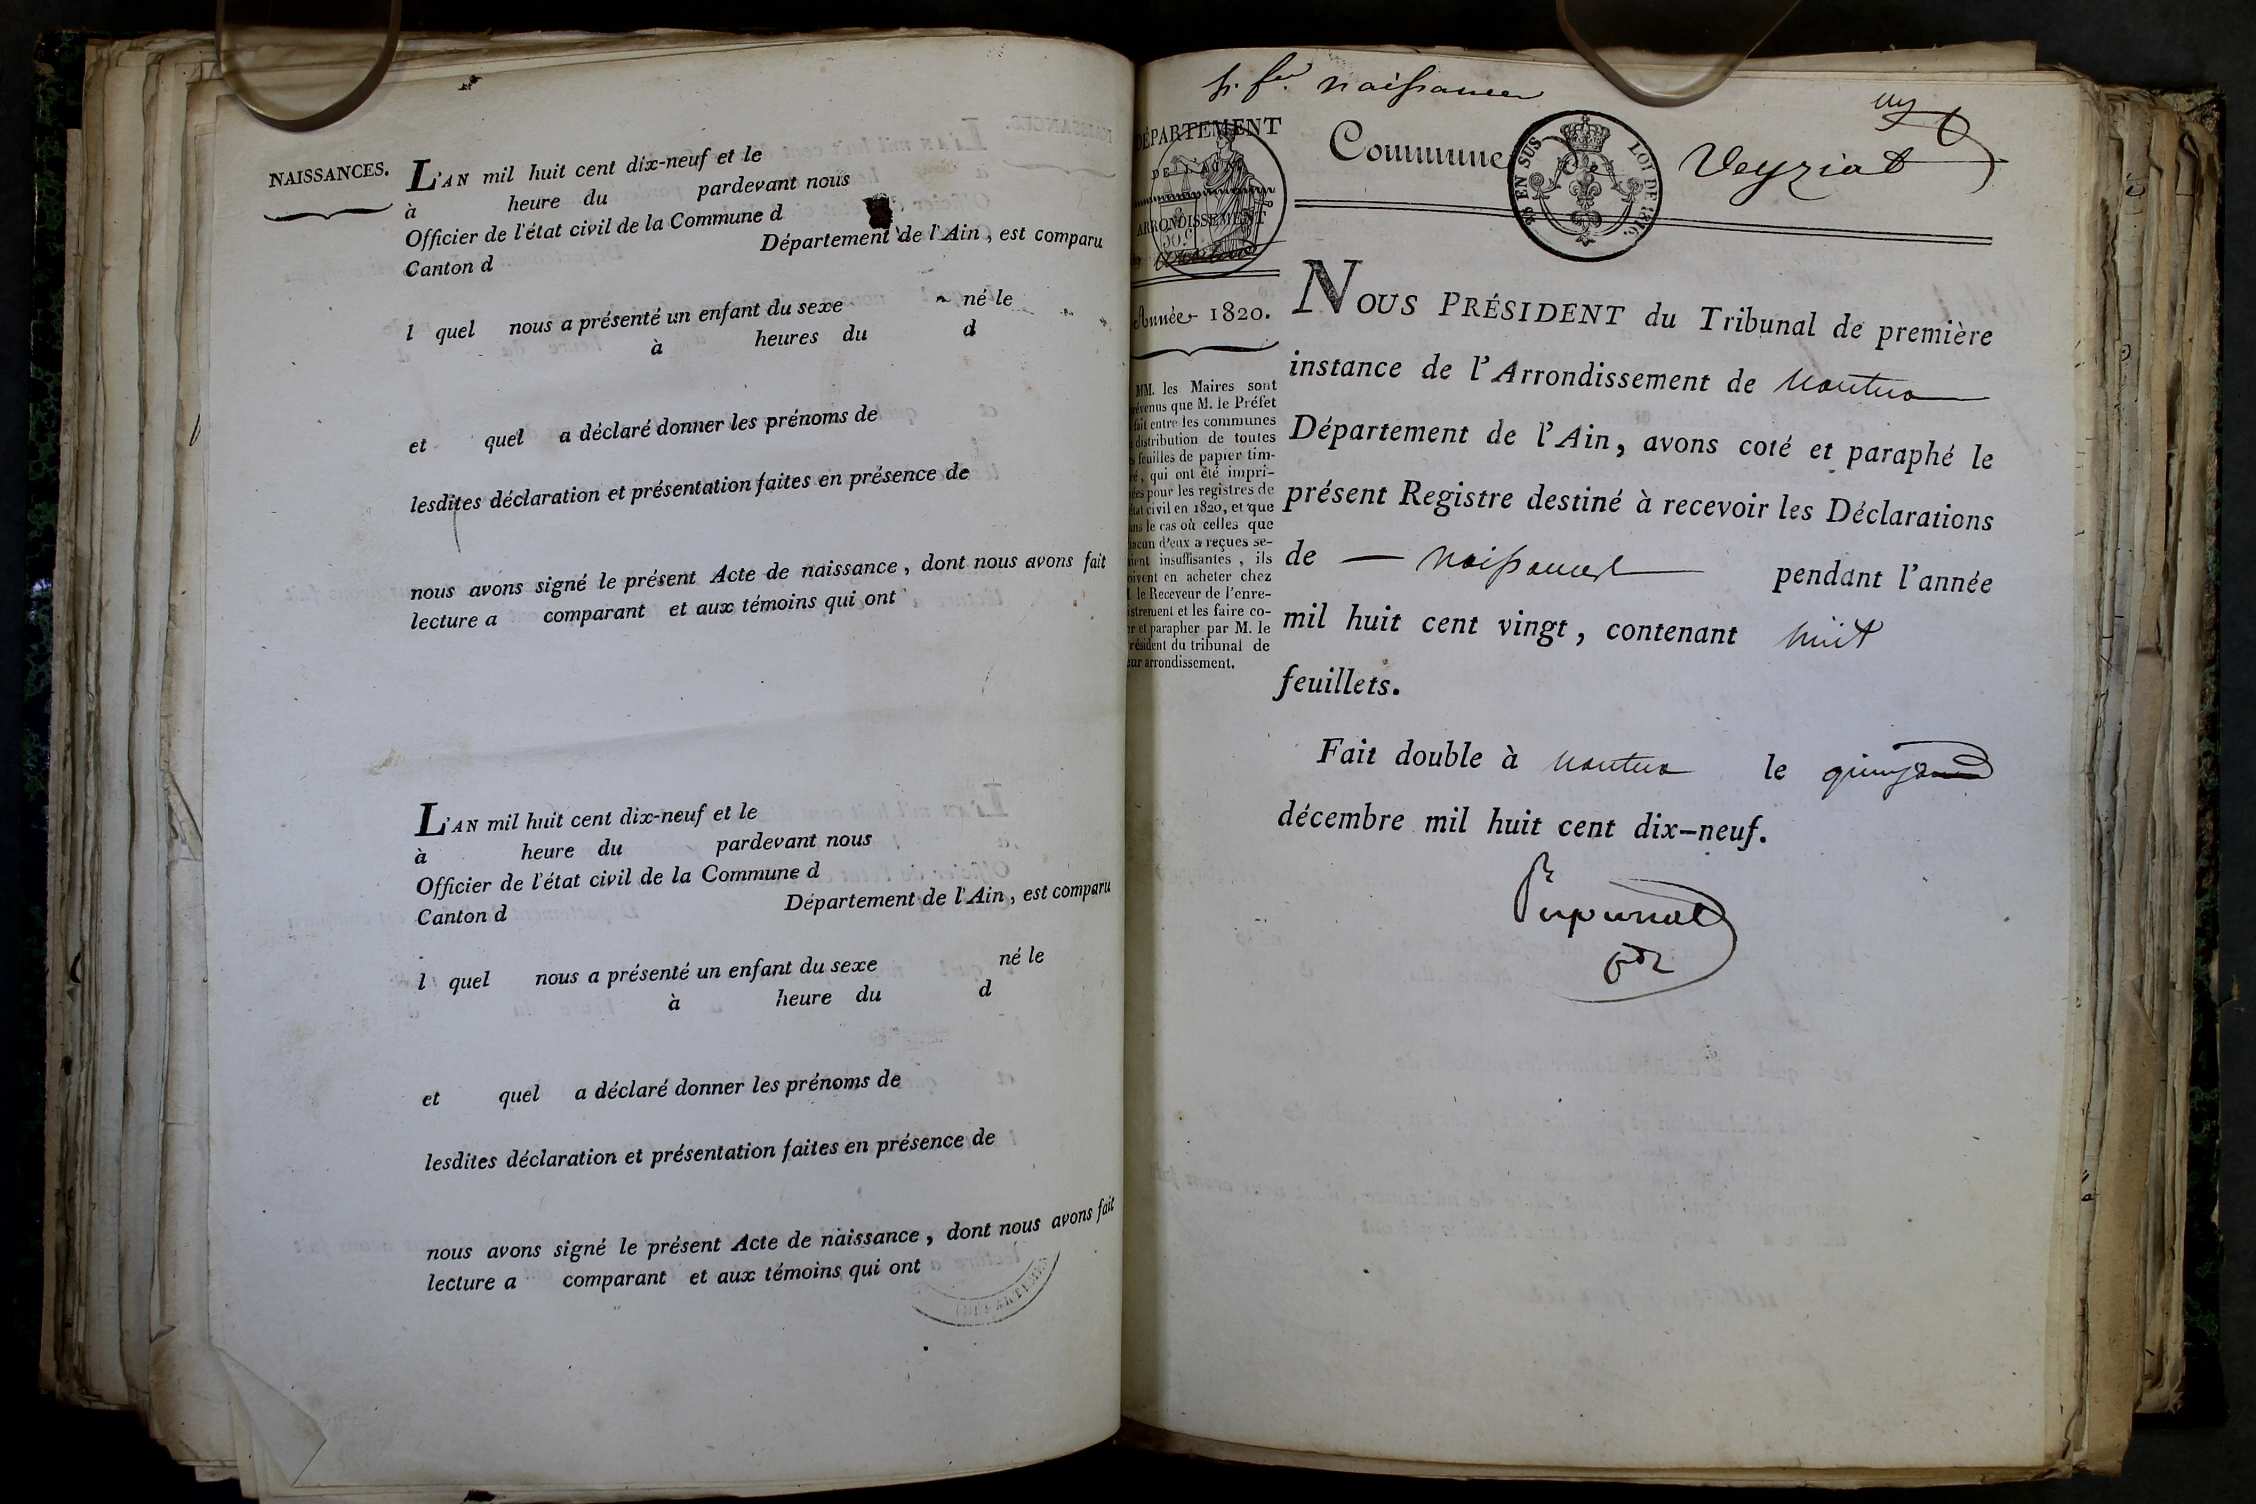 NAISSANCES.
L'AN mil huit cent dix-neuf et le
à heure du pardevant nous
Officier de l'état civil de la Commune d
Canton d Département de l'Ain, est comparu
l quel nous a présenté un enfant du sexe né le
à heures du d
et quel a déclaré donner les prénoms de
lesdites déclaration et présentation faites en présence de
nous avons signé le présent Acte de naissance, dont nous avons fait
lecture a comparant et aux témoins qui ont
L'AN mil huit cent dix-neuf et le
à heure du pardevant nous
Officier de l'état civil de la Commune d
Canton d Département de l'Ain, est comparu
l quel nous a présenté un enfant du sexe né le
à heure du d
et quel a déclaré donner les prénoms de
lesdites déclaration et présentation faites en présence de
nous avons signé le présent Acte de naissance, dont nous avons fait
lecture a comparant et aux témoins qui ont
naissances
DÉPARTEMENT
DE L'AIN
ARRONDISSEMENT
Commune Veyziat
EN SUS LOI DE 1816.
Année 1820.
MM. les Maires sont
révenus que M. le Préfet
fait entre les communes
distribution de toutes
feuilles de papier tim-
ré, qui ont été impri-
ées pour les registres de
état civil en 1820, et que
ans le cas où celles que
acun d'eux a reçues se-
aient insuffisantes, ils
oivent en acheter chez
le Receveur de l'enre-
istrement et les faire co-
er et parapher par M. le
résident du tribunal de
eur arrondissement.
NOUS PRÉSIDENT du Tribunal de première
instance de l'Arrondissement de Nantua
Département de l'Ain, avons coté et paraphé le
présent Registre destiné à recevoir les Déclarations
de — Naissances pendant l'année
mil huit cent vingt, contenant huit
feuillets.
Fait double à Nantua le quinze
décembre mil huit cent dix-neuf.